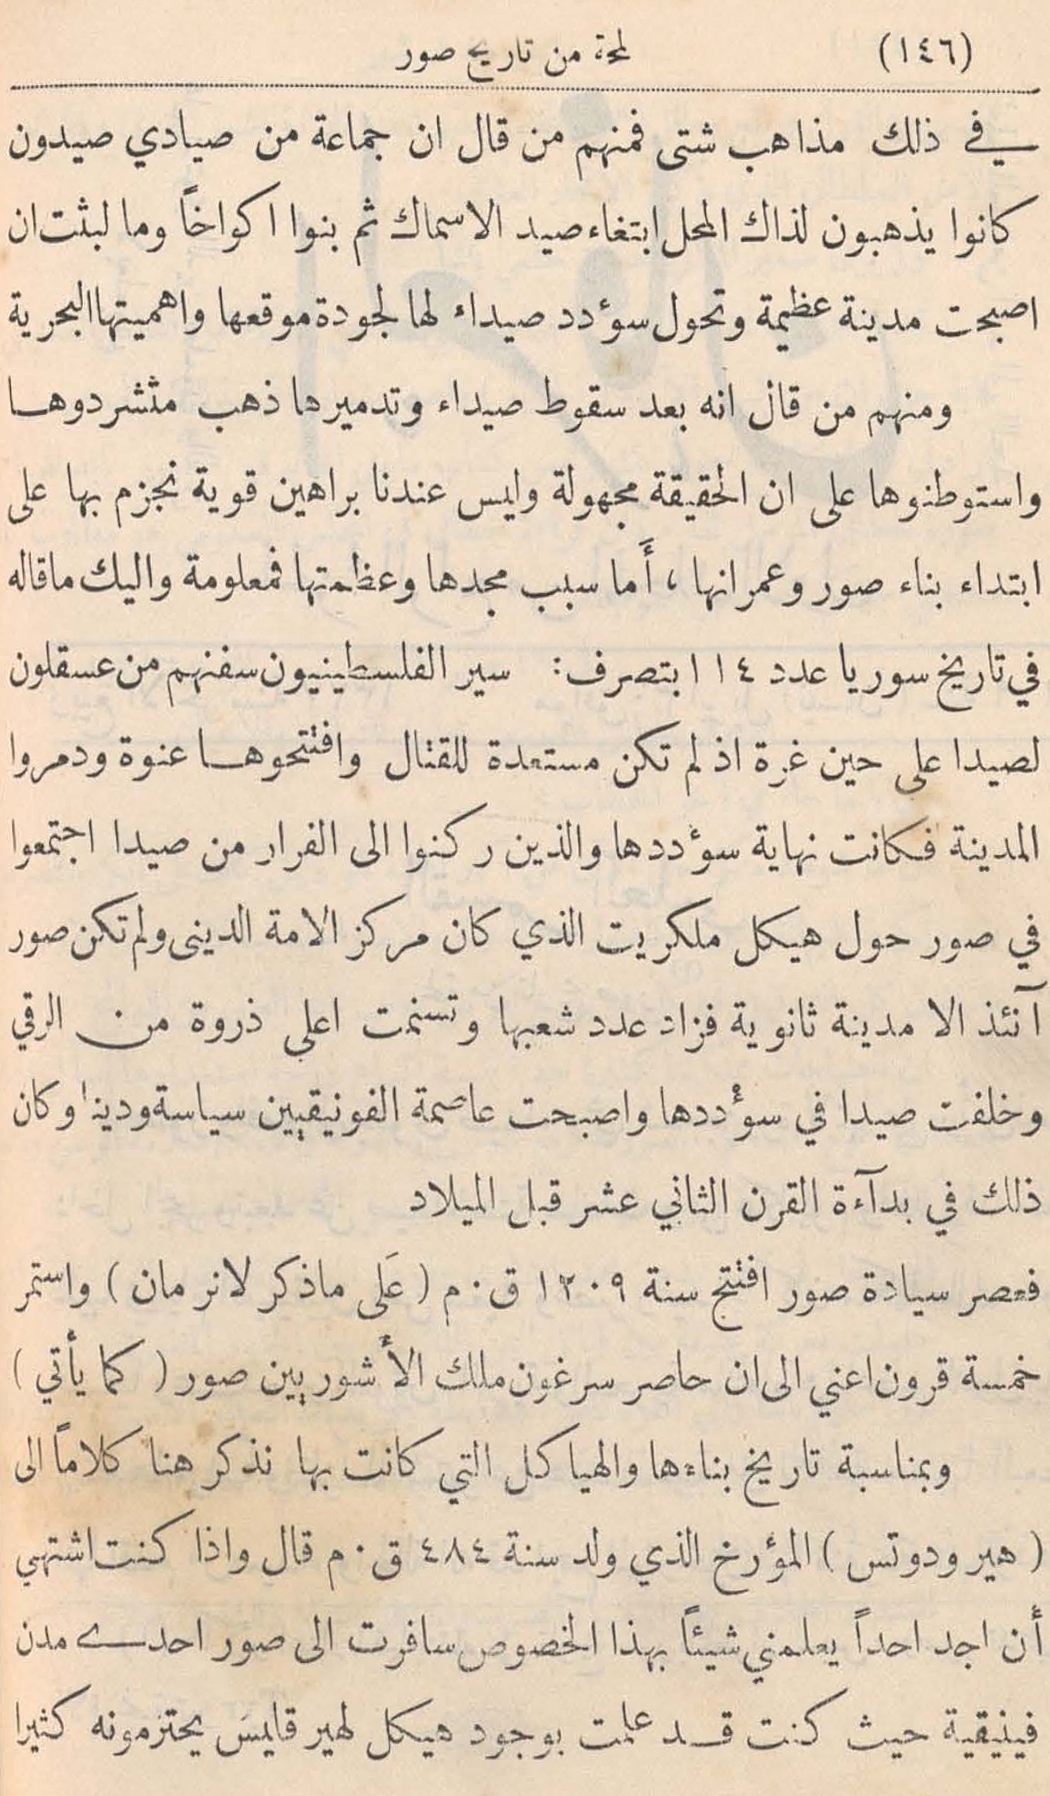 (١٤٦) لمحة من تاريخ صور
في ذلك مذاهب شتى فمنهم من قال ان جماعة من صيادي صيدون
كانوا يذهبون لذاك المحل ابتغاء صيد الاسماك ثم بنوا اكواخاً وما لبثت ان
اصبحت مدينة عظيمة وتحول سوءدد صيداء لها لجودة موقعها واهميتها البحرية
ومنهم من قال انه بعد سقوط صيداء وتدميرها ذهب متشردوها
واستوطنوها على ان الحقيقة مجهولة وليس عندنا براهين قوية نجزم بها على
ابتداء بناء صور وعمرانها ، أَما سبب مجدها وعظمتها فمعلومة واليك ماقاله
في تاريخ سوريا عدد ١١٤ بتصرف : سير الفلسطينيون سفنهم من عسقلون
لصيدا على حين غرة اذ لم تكن مستعدة للقتال وافتتحوها عنوة ودمروا
المدينة فكانت نهاية سوءددها والذين ركنوا الى الفرار من صيدا اجتمعوا
في صور حول هيكل ملكريت الذي كان مركز الامة الديني ولم تكن صور
آنئذ الا مدينة ثانوية فزاد عدد شعبها وتسنمت اعلى ذروة من الرقي
وخلفت صيدا في سوءددها واصبحت عاصمة الفونيقيين سياسة ودينا وكان
ذلك في بدآءة القرن الثاني عشر قبل الميلاد
فعصر سيادة صور افتتح سنة ١٢٠٩ ق . م ( عَلى ماذكر لانرمان ) واستمر
خمسة قرون اعني الى ان حاصر سرغون ملك الأشوريين صور ( كما يأتي )
وبمناسبة تاريخ بناءها والهياكل التي كانت بها نذكر هنا كلاماً الى
( هيرودوتس ) المؤرخ الذي ولد سنة ٤٨٤ ق . م قال واذا كنت اشتهي
أن اجد احداً يعلمني شيئاً بهذا الخصوص سافرت الى صور احدى مدن
فينيقية حيث كنت قد علمت بوجود هيكل لهيرقليس يحترمونه كثيرا